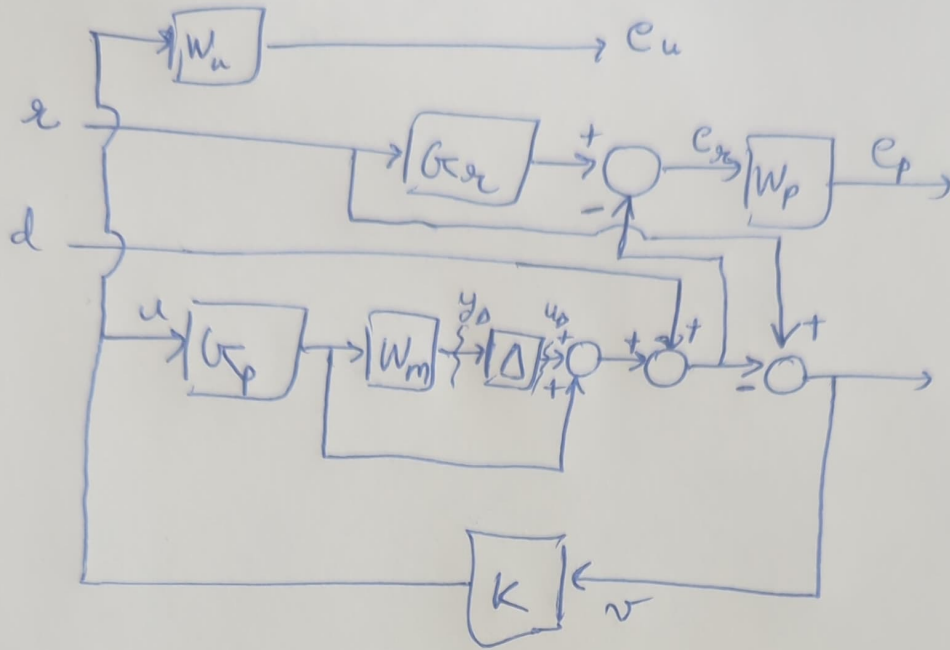 W_u e_u
r G_r + - e_r W_p e_p
d
u G_p W_m y_Δ Δ u_Δ + + + + - +
K v